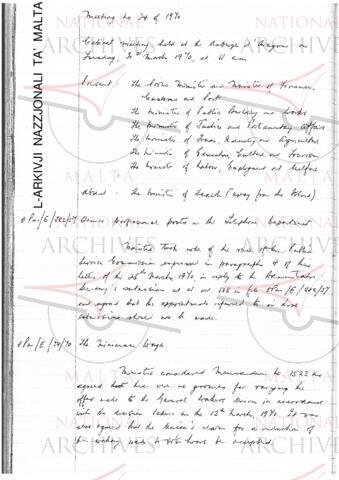 L-ARKIVJI NAZZJONALI TA' MALTA
Meeting No 34 of 1970
Cabinet meeting held at the Auberge d'Aragon on
Tuesday, 31st March 1970, at 11 am
Present: The Prime Minister and Minister of Finance,
Customs and Port
The Minister of Public Building and Works
The Minister of Justice and Parliamentary Affairs
The Minister of Trade, Industry and Agriculture
The Minister of Education, Culture and Tourism
The Minister of Labour, Employment and Welfare
Absent: The Minister of Health (away from the Island)
OPM/E/282/57 professional posts in the Telephone Department
Ministers took note of the views of the Public
Service Commission expressed in paragraph 4 of their
letter of the 26th March, 1970, in reply to the Administrative
Secretary's submission at 108 in file OPM/E/282/57
and agreed that the appointments referred to in those
submissions should be made.
OPM/E/74/70 The minimum wage
Ministers considered Memorandum No 1522 and
agreed that there are no grounds for varying the
offer made to the General Workers Union in accordance
with the decision taken on the 12th March, 1970. It was
also agreed that the Union's claim for a reduction of
the working week to hours be accepted.
NATIONAL
ARCHIVES
MALTA
NATIONAL
ARCHIVES
MALTA
NATIONAL
ARCHIVES